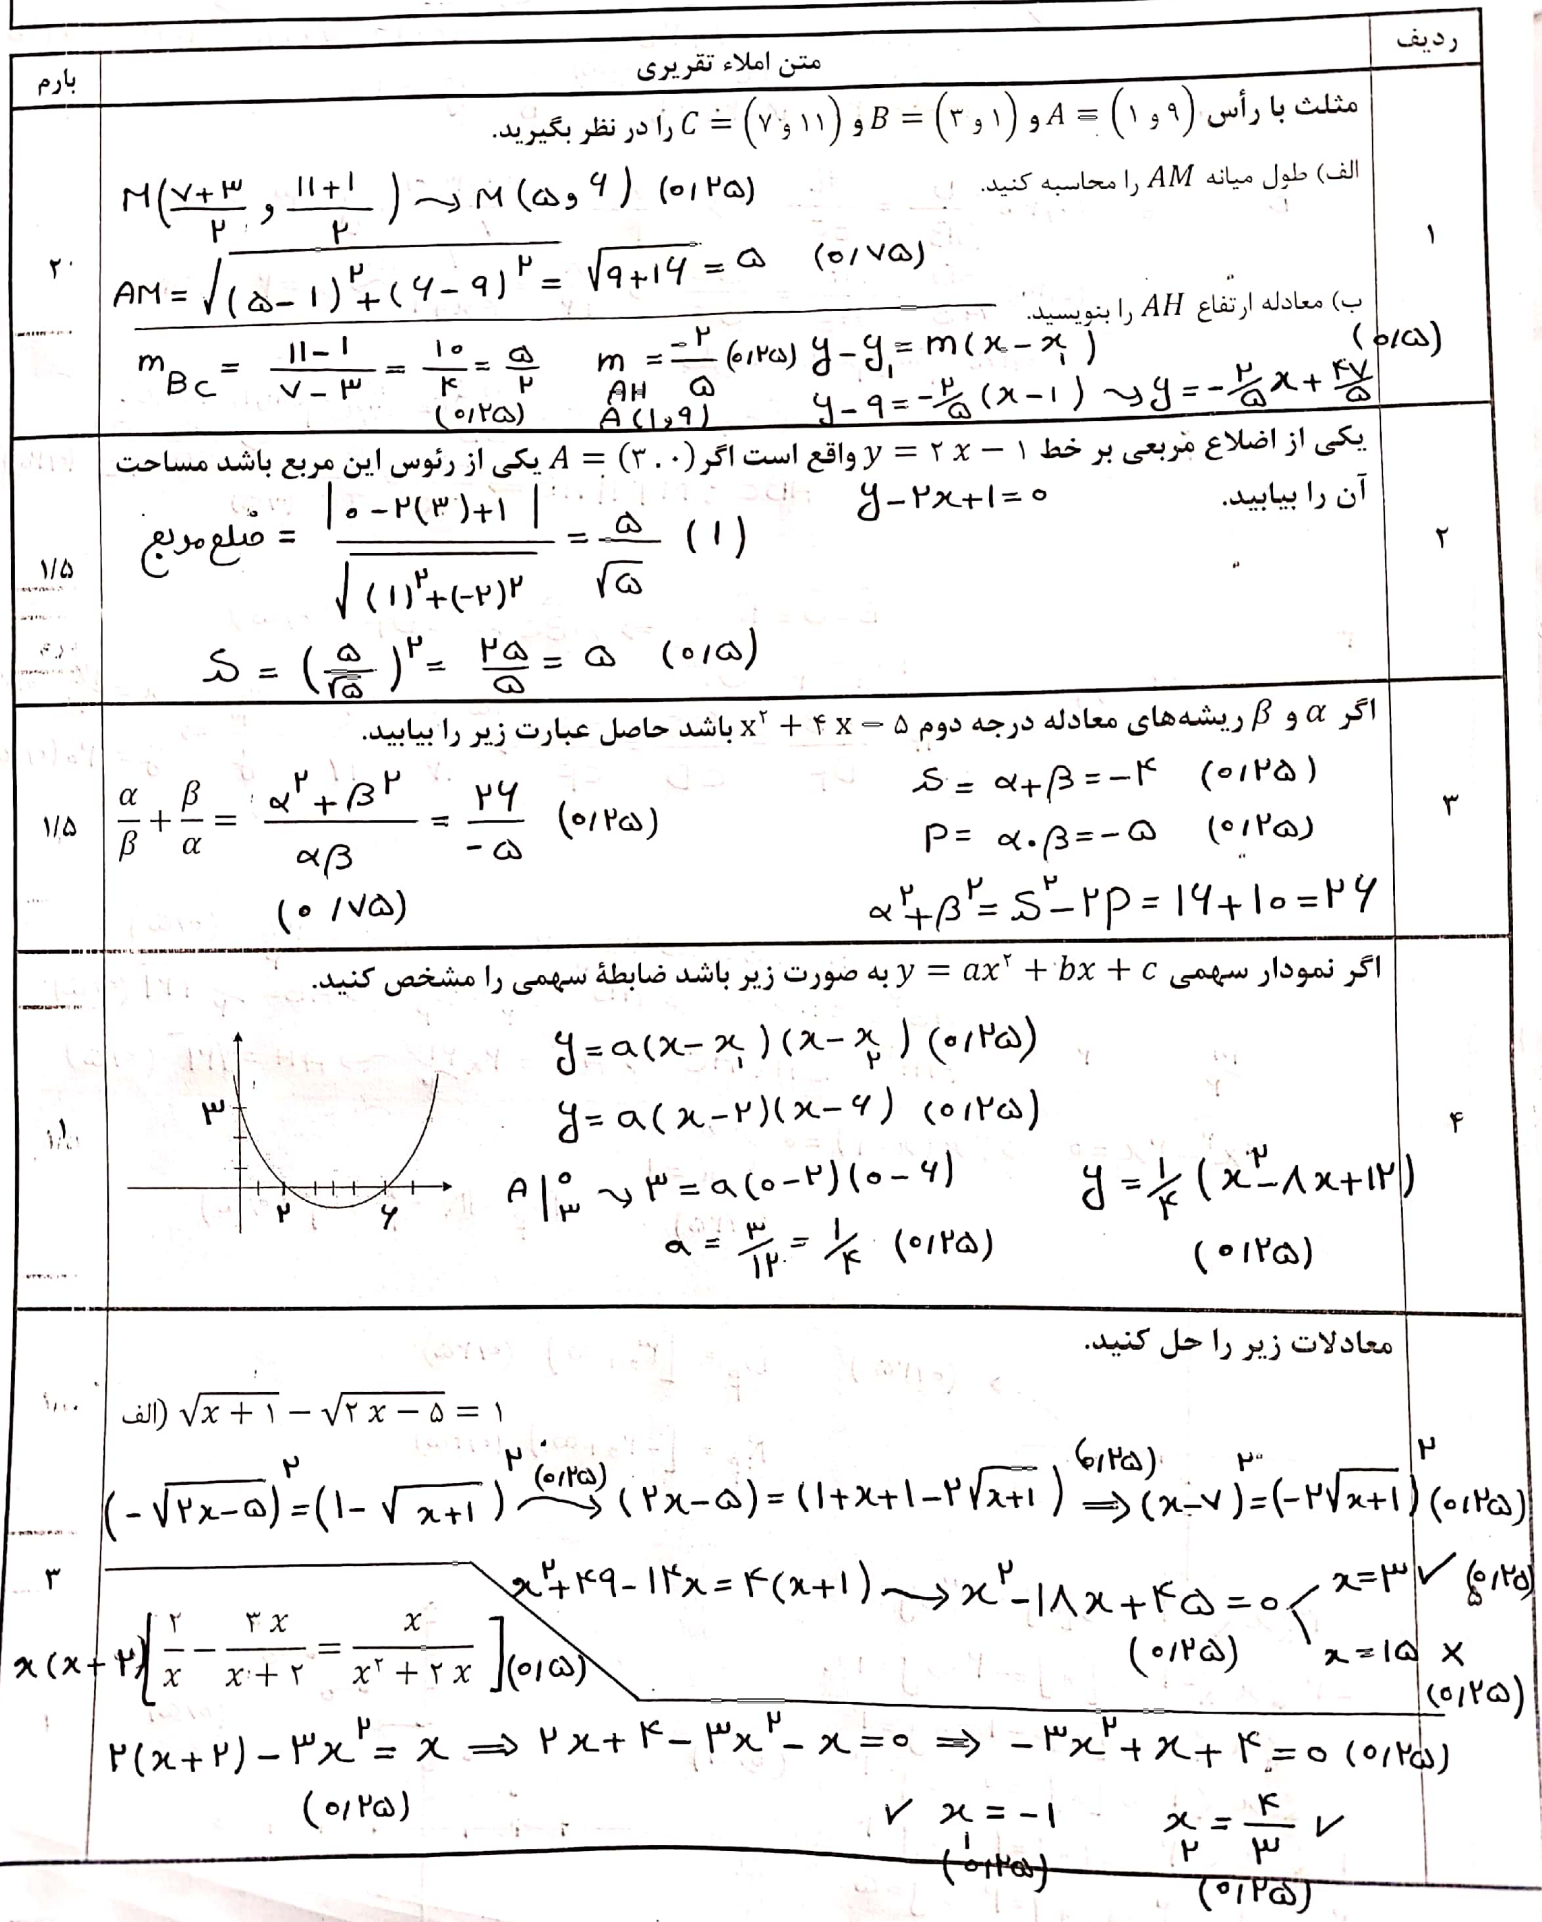 ردیف
متن املاء تقریری
بارم
مثلث با رأس A = (۱ و ۹) و B = (۳ و ۱) و C = (۷ و ۱۱) را در نظر بگیرید.
الف) طول میانه AM را محاسبه کنید.
M(۷+۳/۲ و ۱۱+۱/۲) ⇝ M(۵ و ۶) (۰/۲۵)
۱
۲
AM = √((۵-۱)^۲+(۶-۹)^۲) = √(۹+۱۶) = ۵ (۰/۷۵)
ب) معادله ارتفاع AH را بنویسید.
m_BC = (۱۱-۱)/(۷-۳) = ۱۰/۴ = ۵/۲ (۰/۲۵) m_AH = -۲/۵ (۰/۲۵) y-y₁ = m(x-x₁) (۰/۵)
A(۱و۹) y-۹ = -۲/۵(x-۱) ⇝ y = -۲/۵x + ۴۷/۵
یکی از اضلاع مربعی بر خط y = ۲x − ۱ واقع است اگر A = (۳.۰) یکی از رئوس این مربع باشد مساحت
آن را بیابید.
y-۲x+۱=۰
۲
۱/۵
ضلع مربع = |۰-۲(۳)+۱| / √((۱)^۲+(-۲)^۲) = ۵/√۵ (۱)
S = (۵/√۵)^۲ = ۲۵/۵ = ۵ (۰/۵)
اگر α و β ریشه‌های معادله درجه دوم x² + ۴x − ۵ باشد حاصل عبارت زیر را بیابید.
S = α+β = -۴ (۰/۲۵)
P = α.β = -۵ (۰/۲۵)
۳
۱/۵
α/β + β/α = (α^۲+β^۲)/αβ = ۲۶/-۵ (۰/۲۵)
(۰/۷۵)
α^۲+β^۲ = S^۲-۲P = ۱۶+۱۰ = ۲۶
اگر نمودار سهمی y = ax² + bx + c به صورت زیر باشد ضابطهٔ سهمی را مشخص کنید.
y = a(x-x₁)(x-x₂) (۰/۲۵)
y = a(x-۲)(x-۶) (۰/۲۵)
۳
۲
۶
۴
۱
A|۰ ۳ ⇝ ۳ = a(۰-۲)(۰-۶)
a = ۳/۱۲ = ۱/۴ (۰/۲۵)
y = ۱/۴(x^۲-۸x+۱۲)
(۰/۲۵)
معادلات زیر را حل کنید.
الف) √(x + ۱) − √(۲x − ۵) = ۱
(-√(۲x-۵))^۲ = (۱-√(x+۱))^۲ (۰/۲۵) ⇝ (۲x-۵) = (۱+x+۱-۲√(x+۱)) (۰/۲۵) ⇒ (x-۷)^۲ = (-۲√(x+۱))^۲ (۰/۲۵)
۳
x^۲+۴۹-۱۴x = ۴(x+۱) ⇝ x^۲-۱۸x+۴۵ = ۰ (۰/۲۵) x=۳ ✓ (۰/۲۵)
x=۱۵ × (۰/۲۵)
x(x+۲)[۲/x − ۳x/(x + ۲) = x/(x² + ۲x)] (۰/۵)
۲(x+۲)-۳x^۲ = x ⇒ ۲x+۴-۳x^۲-x=۰ ⇒ -۳x^۲+x+۴=۰ (۰/۲۵)
(۰/۲۵)
✓ x₁ = -۱ x₂ = ۴/۳ ✓
(۰/۲۵) (۰/۲۵)